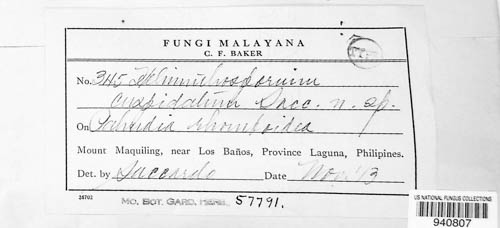 FUNGI MALAYANA
C. F. BAKER
No. 345 Helminthosporium
cuspidatum Sacc. n. sp.
On Pahudia rhomboidea
Mount Maquiling, near Los Baños, Province Laguna, Philipines.
Det. by Saccardo Date Nov. '13
26702
MO. BOT. GARD. HERB. 57791.
US NATIONAL FUNGUS COLLECTIONS
940807